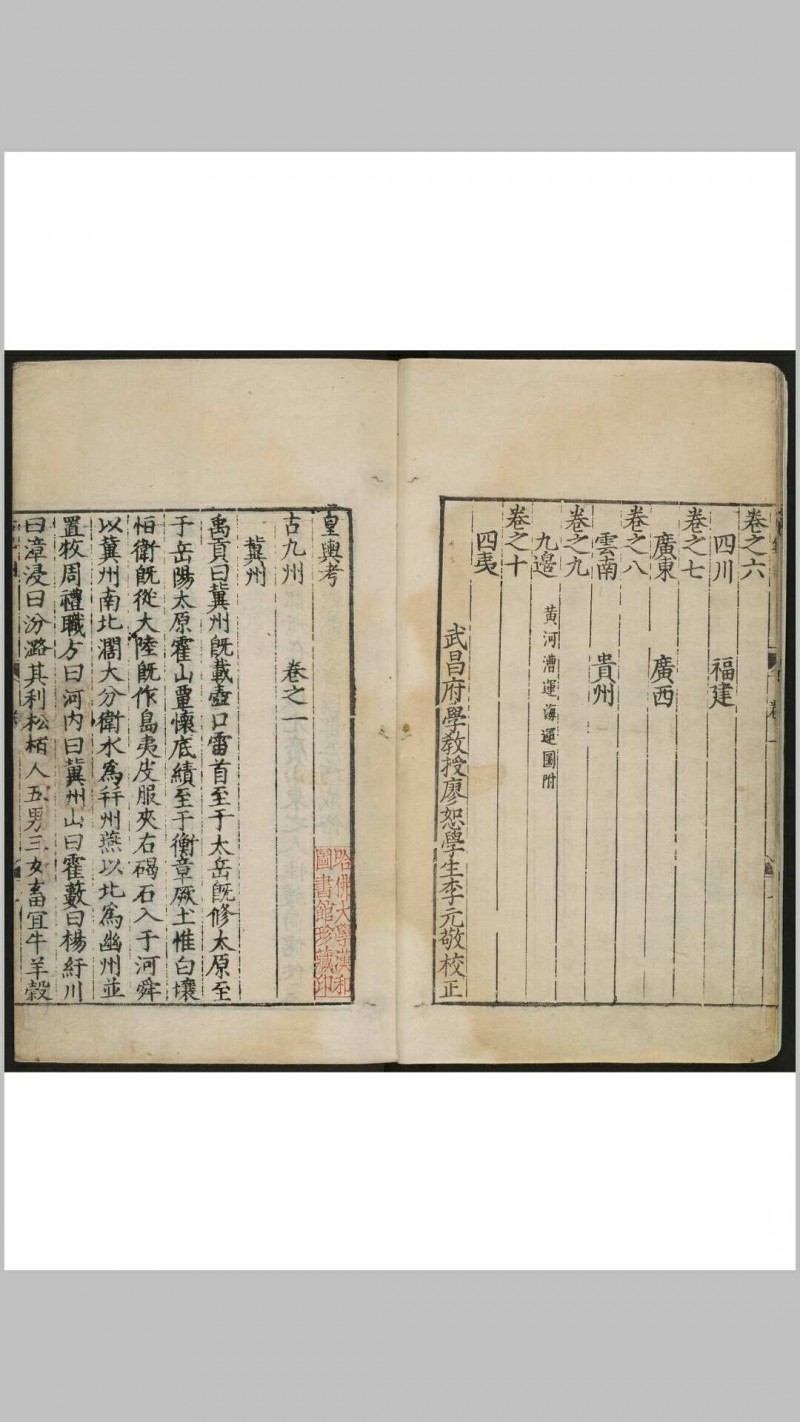 卷之六
四川 福建
卷之七
廣東 廣西
卷之八
雲南 貴州
卷之九
九邊 黄河漕運海運圖附
卷之十
四夷
武昌府學教授廖恕學生李元敬校正
皇輿考
古九州 卷之一
冀州
禹貢曰冀州旣載壺口雷首至于太岳旣修太原至
于岳陽太原霍山覃懷底績至于衡章厥土惟白壤
恒衛旣從大陸旣作島夷皮服夾右碣石入于河舜
以冀州南北濶大分衛水爲并州燕以北爲幽州並
置牧周禮職方曰河内曰冀州山曰霍藪曰楊紆川
曰漳浸曰汾潞其利松栢人五男三女畜宜牛羊榖
哈佛大學漢和
圖書館珍藏印